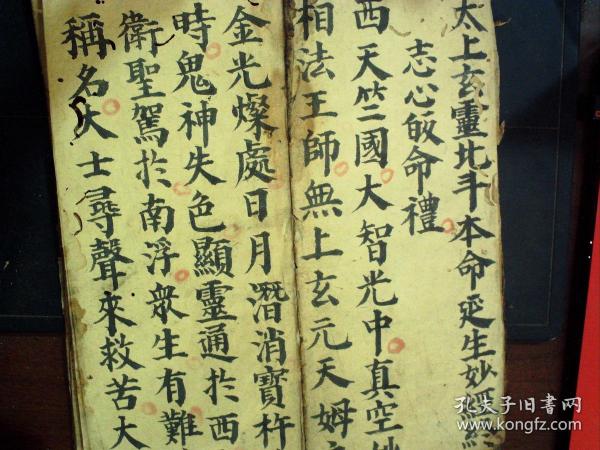 太上玄靈北斗本命延生妙經
志心皈命禮
西天竺國大智光中真空
相法王師無上玄元天姆
金光燦處日月潛消寶杵
時鬼神失色顯靈通於西
衛聖駕於南浮眾生有難
稱名大士尋聲來救苦大
孔夫子旧书网
www.kongfz.com